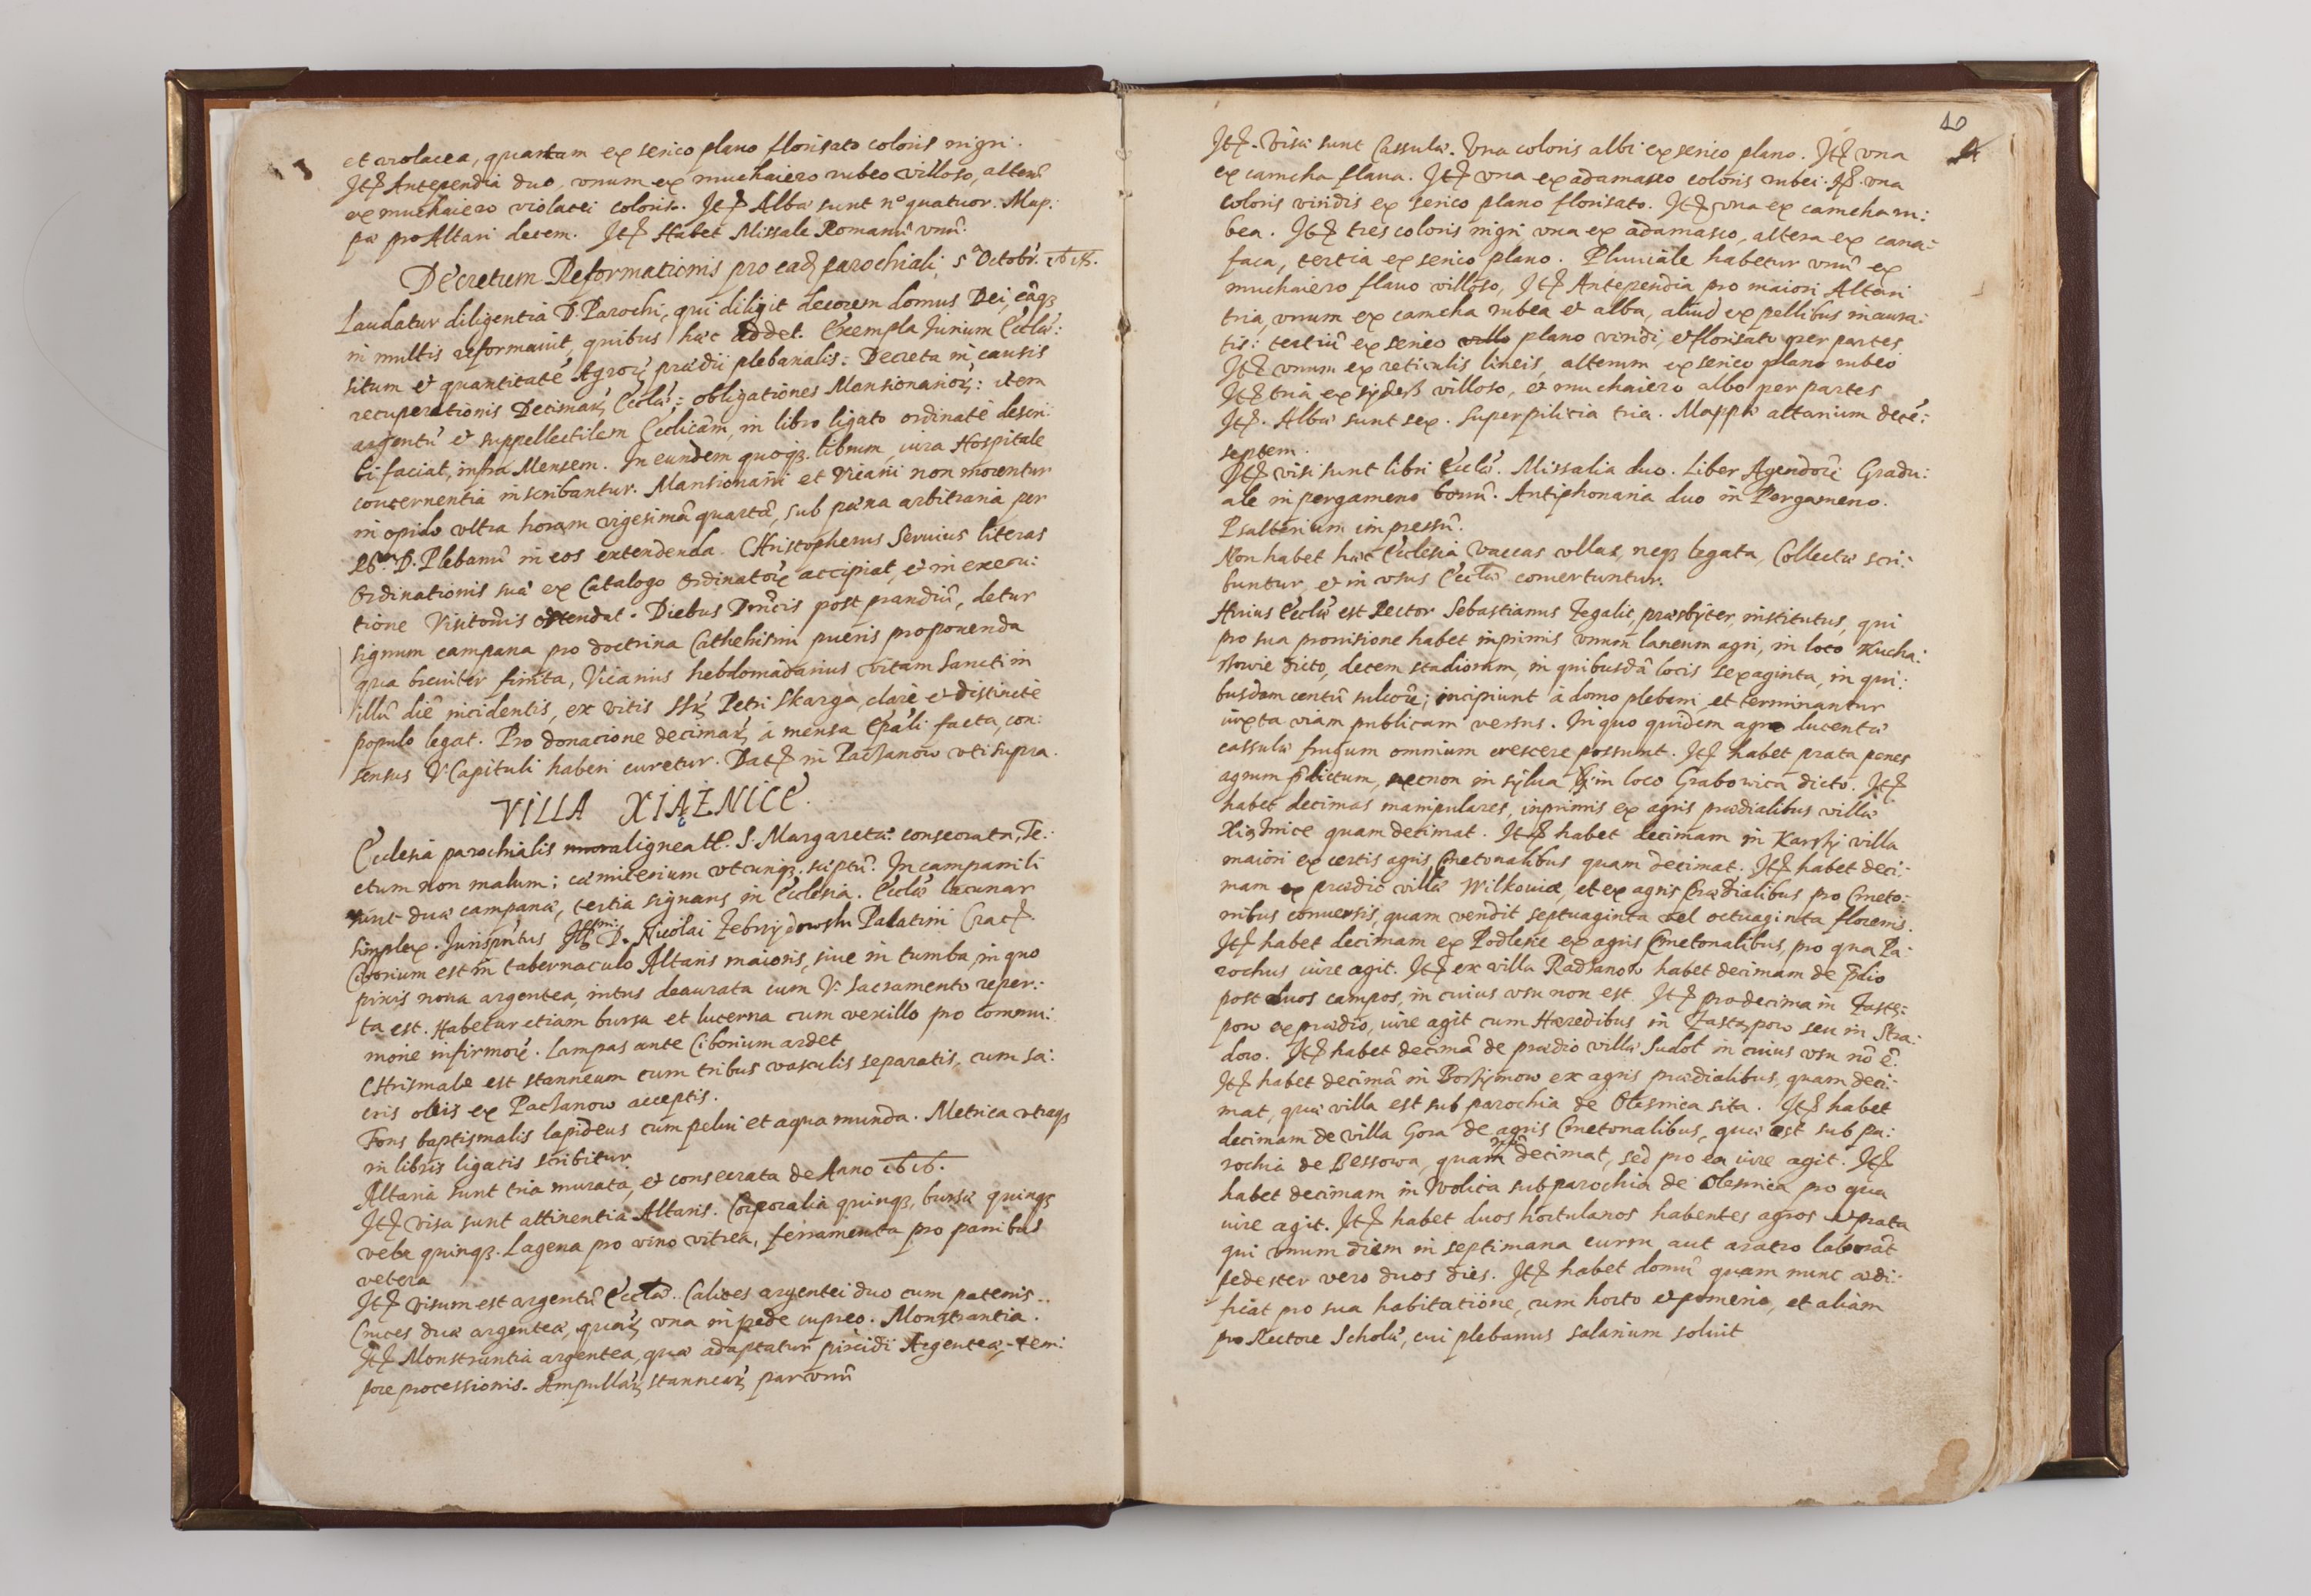 et violacea, quartam ex serico plano florisato coloris nigri.
Itē Antependia duo, vnum ex muchaiero rubeo villoso, alterū
ex muchaiero violacei coloris. Itē Albæ sunt nº quatuor. Map:
pæ pro Altari decem. Itē Habet Missale Romanū vnū.
Decretum Reformationis pro eadē parochiali, 5ª Octobr.
Laudatur diligentia D. Parochi, qui diligit decorem domus Dei, eāqȝ
in multis reformauit, quibus hæc addet. Exempla Iurium Eccłæ:
situm et quantitatē Agrorȝ prædii plebanalis: Decreta in causis
recuperationis Decimarȝ Eccłæ: obligationes Mansionariorȝ: item
argentū et suppellectilem Ecclicām, in libro ligato ordinatè descri:
bi faciat, infra Mensem. In eundem quoqȝ librum, iura Hospitale
concernentia inscribantur. Mansionarii et Vicarii non morentur
in opido vltra horam vigesimā quartā, sub pæna arbitraria per
D. Plebanū in eos extendenda. Christopherus Seruius literas
Ordinationis suæ ex Catalogo Ordinatorȝ accipiat, et in execu:
tione Visitationis ostendat. Diebus Dnīcis post prandiū, detur
signum campana pro doctrina Cathehismi pueris proponenda
qua breuiter finita, Vicarius hebdomadarius vitam Sancti in
illū diē incidentis, ex vitis SSrȝ Petri Skarga, clarè et distinctè
populo legat. Pro donacione decimarȝ à mensa Epāli facta, con:
sensus V. Capituli haberi curetur. Datē in Paczanow vti supra.
VILLA XIĄŻNICE.
Ecclesia parochialis lignea tt. S. Margaretæ consecrata, Te:
ctum non malum; cæmiterium vtcunqȝ septū. In campanili
sunt duæ campanæ, tertia signans in Ecclesia. Eccłæ lacunar
simplex. Iurispr̄ntus D. Nicolai Zebrzydowski Palatini Crac.
Ciborium est in tabernaculo Altaris maioris, siue in tumba, in quo
pixis noua argentea, intus deaurata cum V. Sacramento reper:
ta est. Habetur etiam bursa et lucerna cum vexillo pro commu:
nione infirmorȝ. Lampas ante Ciborium ardet
Chrismale est stanneum cum tribus vasculis separatis, cum sa:
cris oleis ex Paczanow acceptis.
Fons baptismalis lapideus cum pelui et aqua munda. Metrica vtraqȝ
in libris ligatis scribitur.
Altaria sunt tria murata, et consecrata de Anno
Itē visa sunt attinentia Altaris. Corporalia quinqȝ, bursæ quinqȝ
vela quinqȝ. Lagena pro vino vitrea, ferramenta pro panibus
vetera
Itē visum est argentū Eccłæ. Calices argentei duo cum patenis.
Cruces duæ argenteæ, quarȝ vna in pede cupreo. Monstrantia.
Itē Monstrantia argentea, quæ adaptatur pixidi Argenteæ, tem:
pore processionis. Ampullarȝ stannearȝ par vnū
10
Itē. Visæ sunt Cassulæ. Vna coloris albi ex serico plano. Itē vna
ex camcha flaua. Itē vna ex adamasco coloris rubei. Itē vna
coloris viridis ex serico plano florisato. Itē vna ex camcha ru:
bea. Itē tres coloris nigri vna ex adamasco, altera ex cana:
faca, tertia ex serico plano. Pluuiale habetur vnū ex
muchaiero flauo villoso, Itē Antependia pro maiori Altari
tria, vnum ex camcha rubea et alba, aliud ex pellibus inaura:
tis: tertiū ex serico plano viridi, et florisato per partes
Itē vnum ex reticulis lineis, alterum ex serico plano rubeo
Itē tria ex villoso, et muchaiero albo per partes
Itē. Albæ sunt sex. Superpilicia tria. Mappæ altarium decē:
septem.
Itē visi sunt libri Eccłæ. Missalia duo. Liber Agendorȝ Gradu:
ale in pergameno bonū. Antiphonaria duo in Pergameno.
Psalterium impressū.
Non habet hæc Ecclesia vaccas vllas, neqȝ legata, Collectæ scri:
buntur, et in vsus Eccłæ conuertuntur.
Huius Eccłæ est Rector Sebastianus Zegalic, præsbyter, institutus, qui
pro sua prouisione habet inprimis vnum laneum agri, in loco Kucha:
rowie dicto, decem stadiorum, in quibusdā locis sexaginta, in qui:
busdam centū sulcorȝ; incipiunt à domo plebani, et terminantur
iuxta viam publicam versus. In quo quidem agro ducentæ
cassulæ frugum omnium crescere possunt. Itē habet prata penes
agrum p̄dictum, necnon in sylua in loco Grabowica dicto. Itē
habet decimas manipulares, inprimis ex agris prædialibus villæ
Xiąznice quam decimat. Itē habet decimam in Karsky villa
maiori ex certis agris Cmetonalibus quam decimat. Itē habet deci:
mam ex prædio villæ Wilkowice, et ex agris Prædialibus pro Cmeto:
nibus conuersis, quam vendit septuaginta vel octuaginta florenis.
Itē habet decimam ex Podlesie ex agris Cmetonalibus, pro qua Pa:
rochus iure agit. Itē ex villa Radzanow habet decimam de p̄dio
post duos campos, in cuius vsu non est. Itē pro decima in Zastȩ:
pow ex prædio, iure agit cum Hæredibus in Zastȩpow seu in Stra:
dow. Itē habet decimā de prædio villæ Sudoł in cuius vsu nō ē.
Itē habet decimā in Borzymow ex agris prædialibus, quam deci:
mat, quæ villa est sub parochia de Olesnica sita. Itē habet
decimam de villa Gora de agris Cmetonalibus, quæ est sub pa:
rochia de Bessowa, quam nō decimat, sed pro ea iure agit. Itē
habet decimam in Wolica sub parochia de Olesnica, pro qua
iure agit. Itē habet duos hortulanos habentes agros et prata
qui vnum diem in septimana curru aut aratro laborāt
pedester vero duos dies. Itē habet domū quam nunc ædi:
ficat pro sua habitatione, cum horto et pomerio, et aliam
pro Rectore Scholæ, cui plebanus salarium soluit